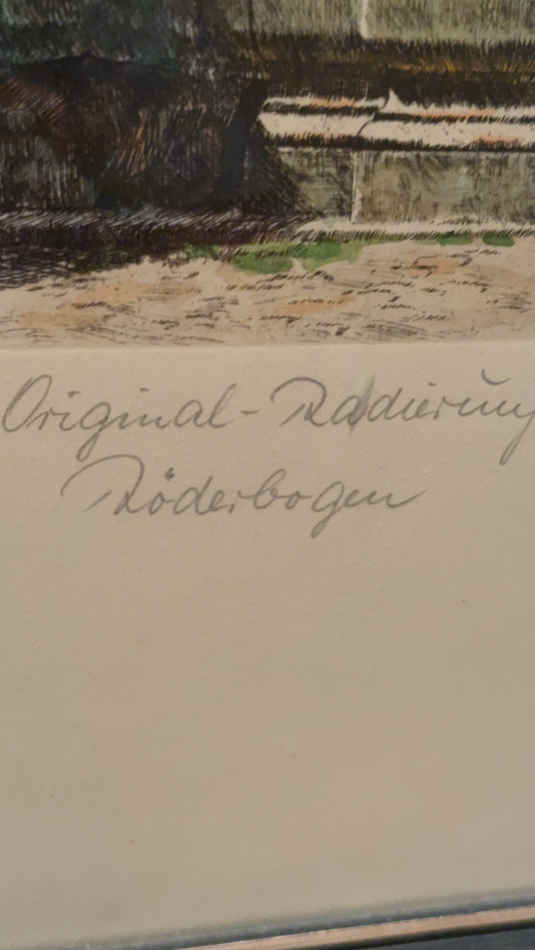 Original-Radierung
Röderbogen